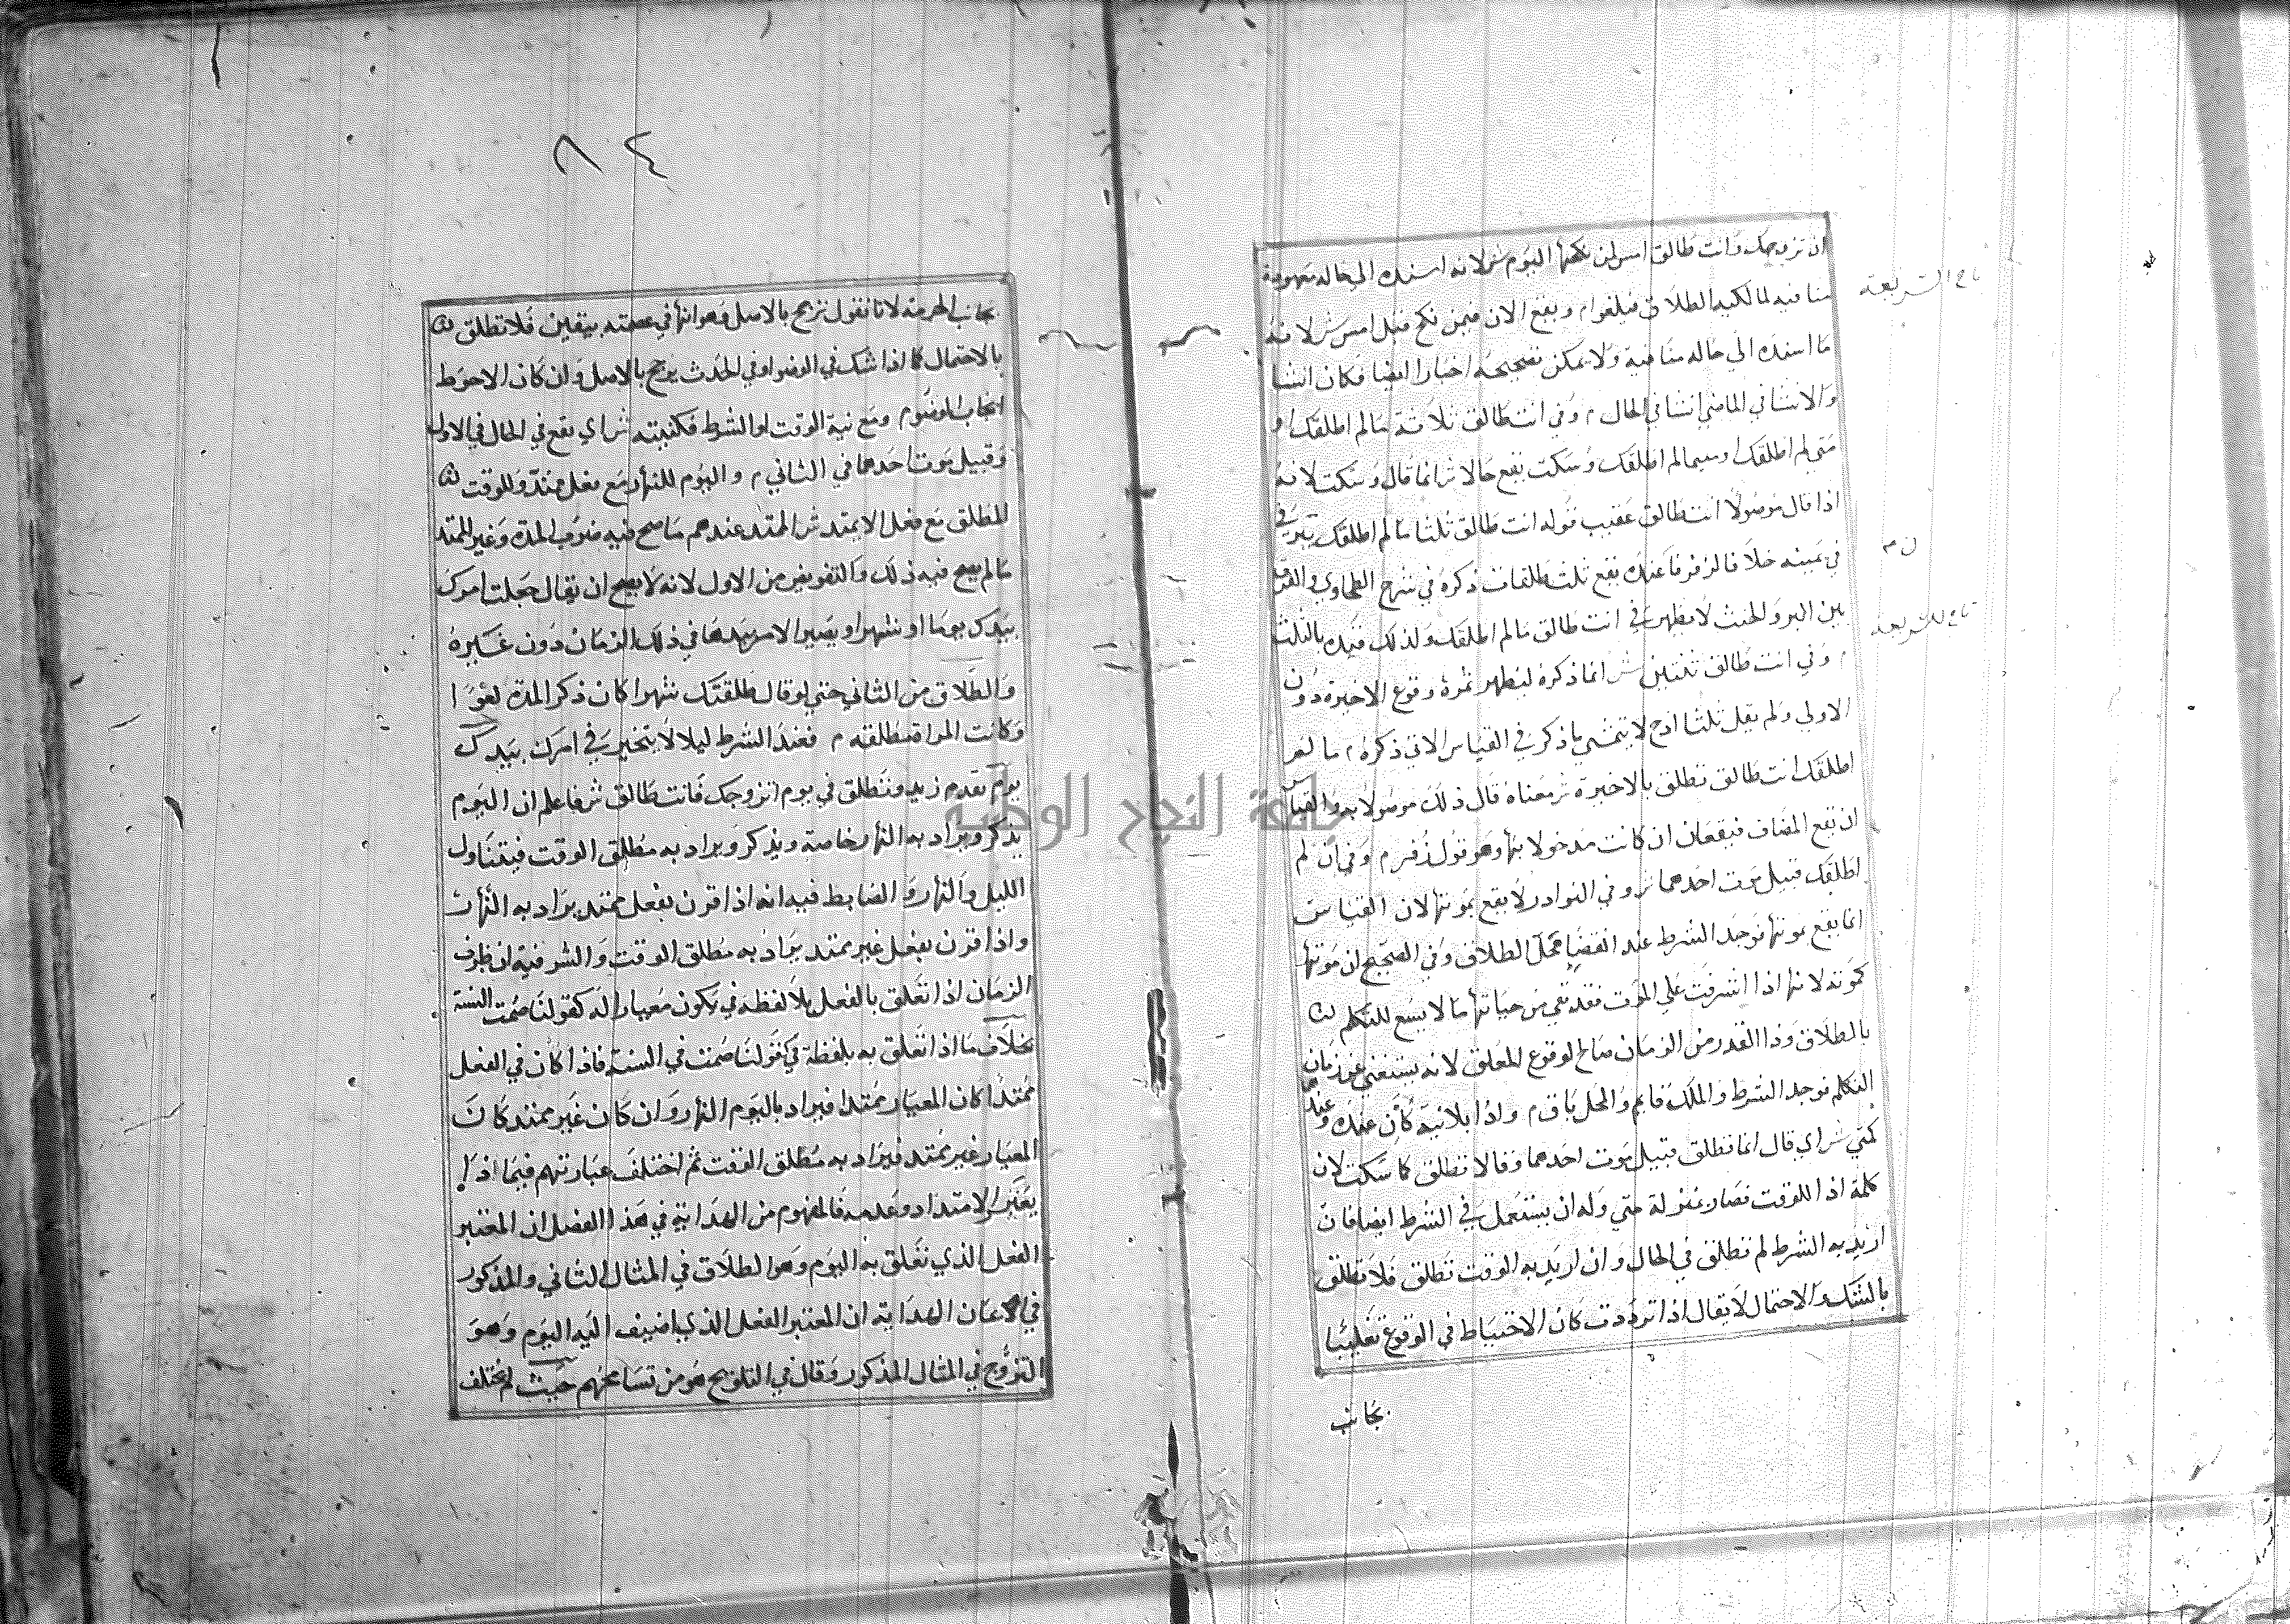 ان تزوجك وانت طالق امس لمن نكحها اليوم ش لانه اسنده الى حاله معهودة
منافيه لمالكيه الطلاق فيلغوا م ويقع الان فيمن نكح قبل امس ش لانه
ما اسنده الي حاله منافية ولا يمكن تصحيحه اخبارا ايضا فكان انشا
والانشا في الماضي انشا في الحال م وفي انت طالق ثلاثة مالم اطلقك او
متي لم اطلقك او متيما لم اطلقك وسكت يقع حالا ش انما قال وسكت لانه
اذا قال موصولا انت طالق عقيب قوله انت طالق ثلثا مالم اطلقك يبر في
في يمينه خلافا لزفر فا عنده يقع ثلث طلقات ذكره في شرح الطحاوي والفرق
بين البر والحنث لا يظهر في انت طالق مالم اطلقك ولذلك قيده بالثلث
م وفي انت طالق ثنتين ش انما ذكره ليظهر ثمرة وقوع الاخيرة دون
الاولي ولم يقل ثلثا اذح لا يتمشي ما ذكر في القياس الاتي ذكره م ما لم
اطلقك انت طالق تطلق بالاخيرة ش معناه قال ذلك موصولا به والقياس
ان يقع المضاف فيقعان ان كانت مدخولا بها وهو قول زفر م وفي ان لم
اطلقك قبيل موت احدهما ش وفي النوادر لا يقع بموتها لان القياس
انما يقع بموتها فوجد الشرط عند انقضا محل الطلاق وفي الصحيح ان موتها
كموته لانها اذا اشرفت علي الموت فقد بقي من حياتها ما لا يسع للتكلم
بالطلاق وذا القدر من الزمان صالح لوقوع المعلق لانه يستغني عن زمان
التكلم فوجد الشرط والملك قايم والمحل باق م واذا بلانية كان عنده وعندهما
كمتي ش اي قال انما تطلق قبيل موت احدهما وقالا تطلق كما سكت لان
كلمة اذا للوقت فصار بمنزلة متي وله ان يستعمل في الشرط ايضا فان
اريد به الشرط لم تطلق في الحال وان اريد به الوقت تطلق فلا تطلق
بالشك والاحتمال لا يقال اذا ترددت كان الاحتياط في الوقوع تغليبا
بجانب
تاج الشريعه
ن م
تاج للشريعه
٨٤
بجانب الحرمة لانا نقول ترجح بالاصل وهو انها في عصمته بيقين فلا تطلق
بالاحتمال كما اذا شك في الوضو او في الحدث يرجح بالاصل وان كان الاحوط
ايجاب الوضوء م ومع نية الوقت او الشرط فكنيته ش اي يقع في الحال في الاول
وقبيل موت احدهما في الثاني م واليوم للنهار مع فعل ممتد وللوقت
المطلق مع فعل لا يمتد ش الممتد عندهم ما صح فيه ضرب المدة وغير الممتد
مالم يصح فيه ذلك والتفويض من الاول لانه لا يصح ان يقال جعلت امرك
بيدك يوما او شهرا ويصير الامر بيدها في ذلك الزمان دون غيره
والطلاق من الثاني حتي لو قال طلقتك شهرا كان ذكر المدة لغوا
وكانت المراة مطلقته م فعند الشرط ليلا لا يتخير في امرك بيدك
يوم يقدم زيد وتطلق في يوم اتزوجك فانت طالق ش فاعلم ان اليوم
يذكر ويراد به النهار خاصة ويذكر ويراد به مطلق الوقت فيتناول
الليل والنهار والضابط فيه انه اذا قرن بفعل ممتد يراد به النهار
واذا قرن بفعل غير ممتد يراد به مطلق الوقت والسر فيه ان ظرف
الزمان اذا تعلق بالفعل بلا لفظه في يكون معيارا له كقولنا صمت السنة
بخلاف ما اذا تعلق به بلفظة في كقولنا صمت في السنة فاذا كان في الفعل
ممتدا كان المعيار ممتدا فيراد باليوم النهار وان كان غير ممتد كان
المعيار غير ممتد فيراد به مطلق الوقت ثم اختلف عباراتهم فيما اذا
يعتبر الامتداد وعدمه فالمفهوم من الهداية في هذا الفصل ان المعتبر
الفعل الذي تعلق به اليوم وهو الطلاق في المثال الثاني والمذكور
في الايمان الهداية ان المعتبر الفعل الذي اضيف اليه اليوم وهو
التزوج في المثال المذكور وقال في التلويح هو من تسامحهم حيث لم يختلف